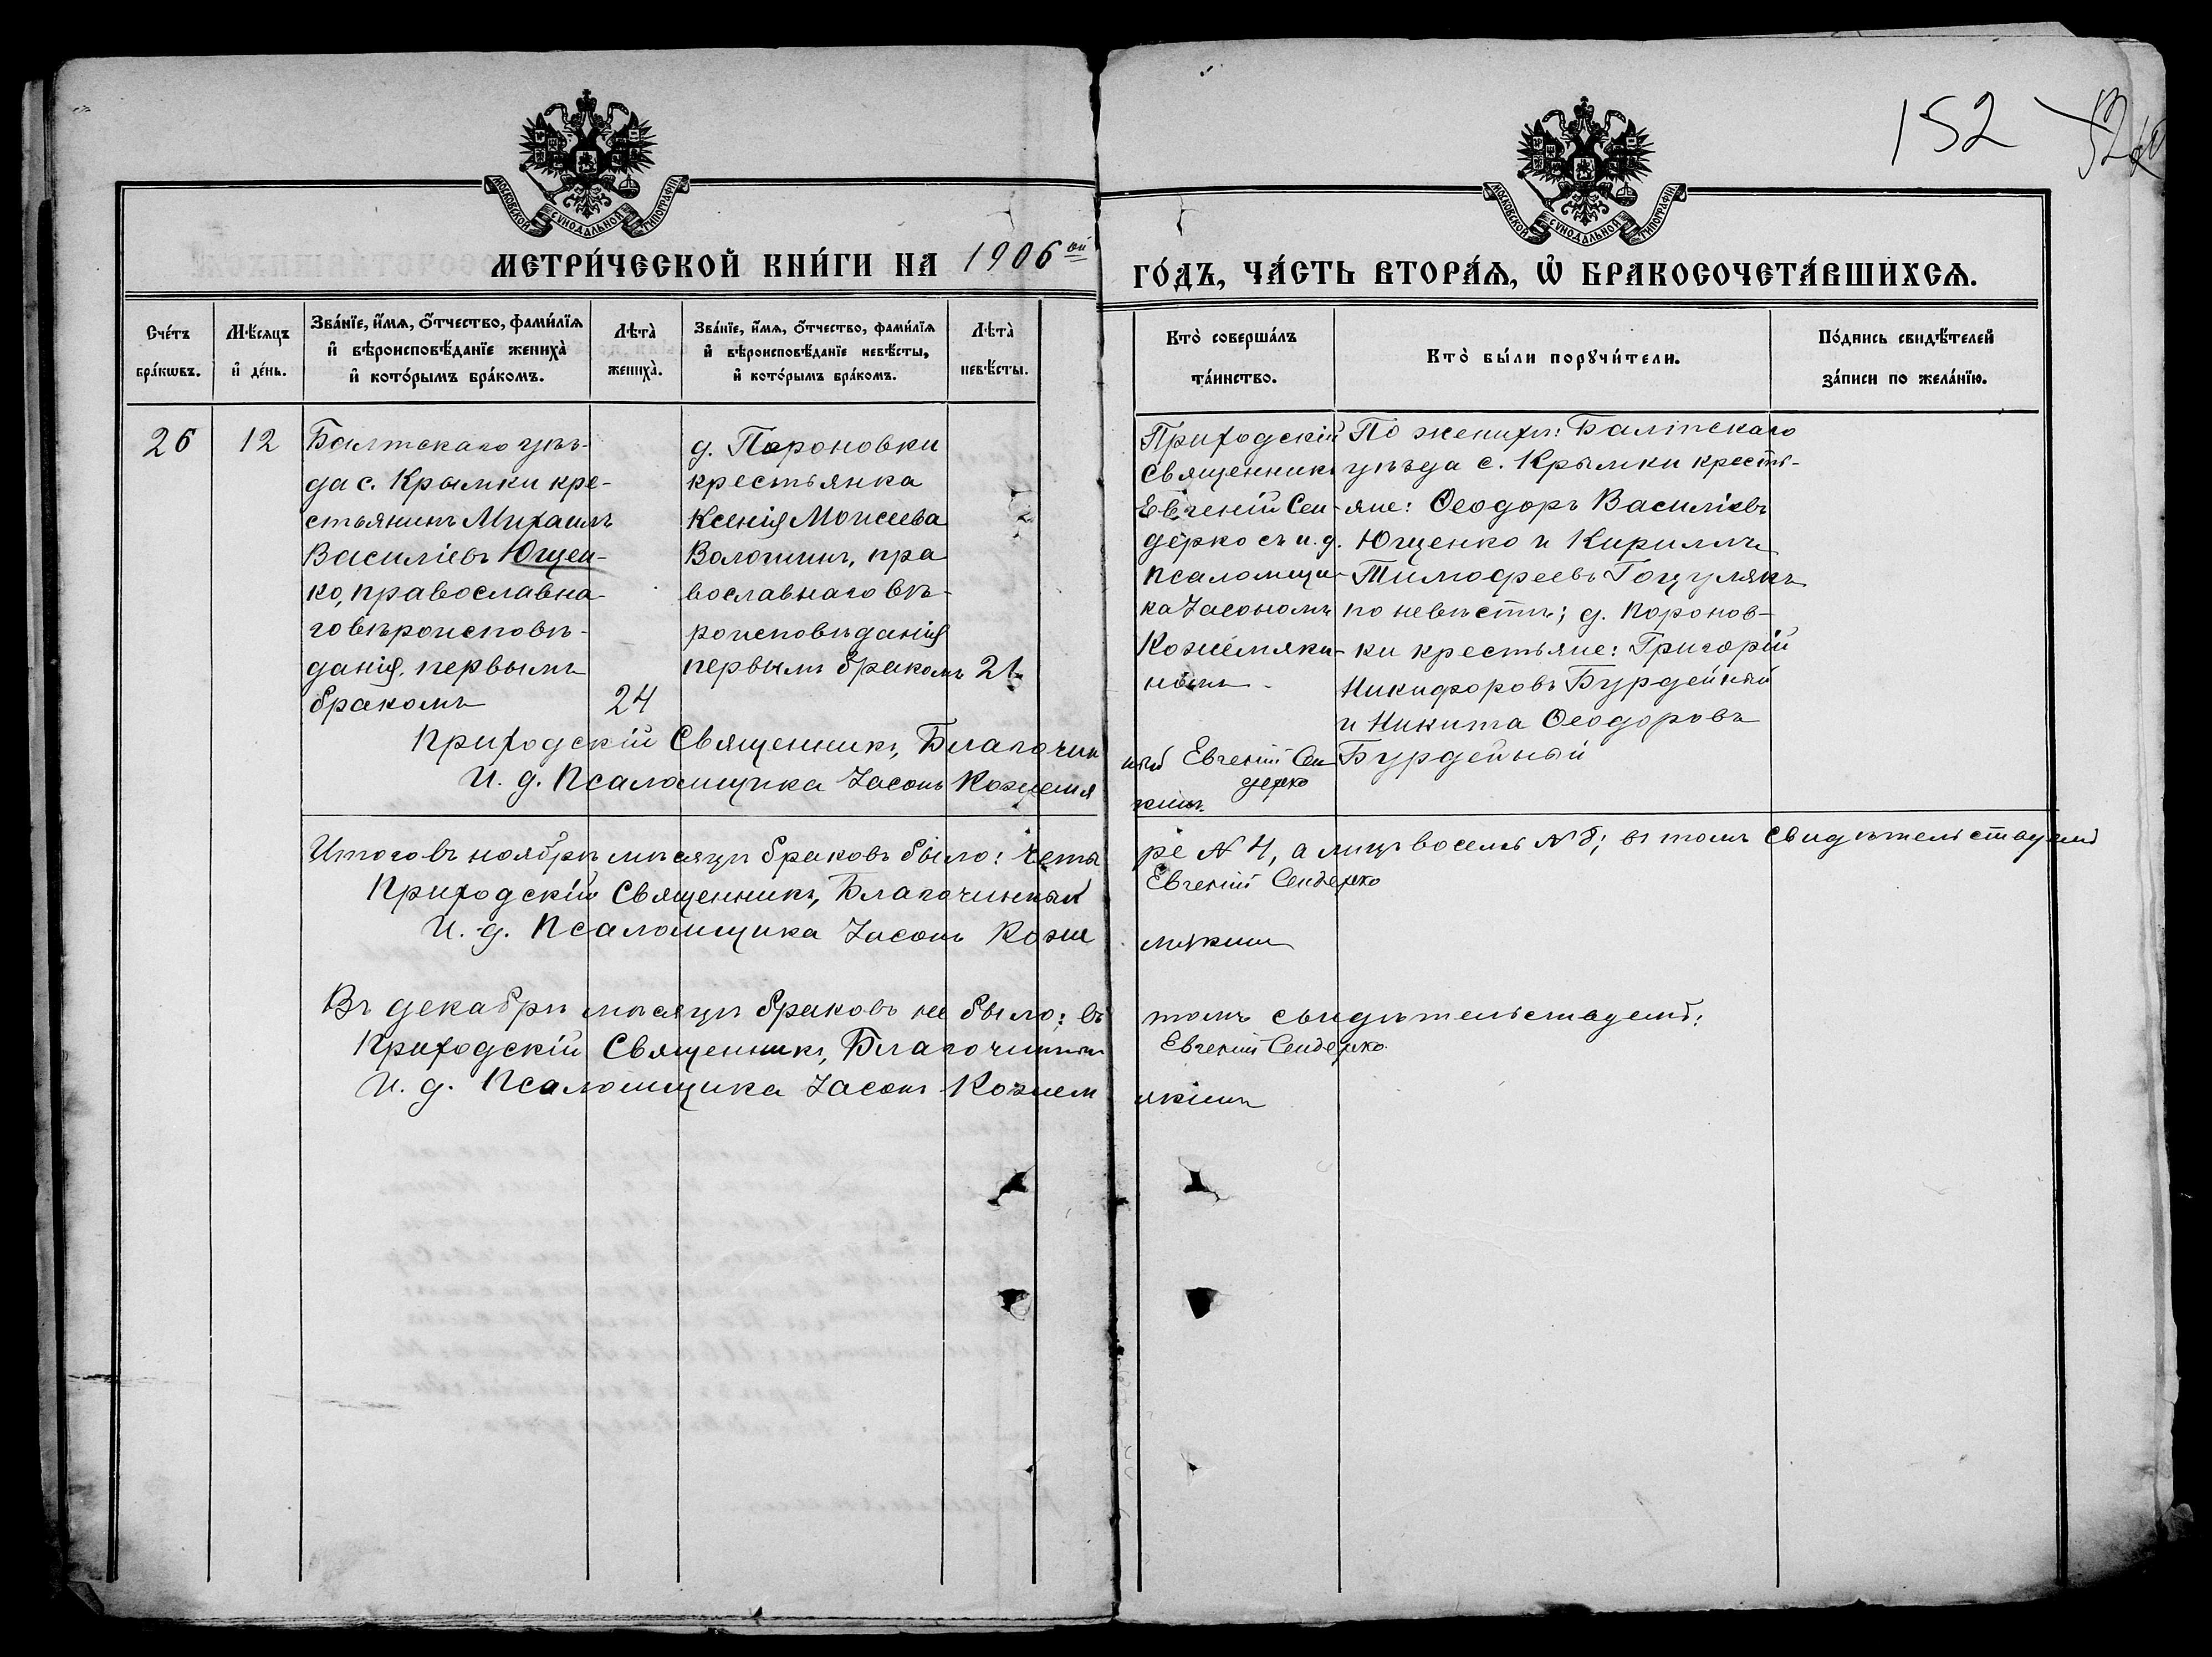 152
МОСКОВСКОЙ СѴНОДАЛЬНОЙ ТИПОГРАФІИ
МОСКОВСКОЙ СѴНОДАЛЬНОЙ ТИПОГРАФІИ
МЕТРИ́ЧЕСКОЙ КНИ́ГИ НА 1906 ой
ГО́ДЪ, ЧА́СТЬ ВТОРА́Ѧ, Ѡ҆ БРАКОСОЧЕТА́ВШИХСѦ.
Сче́тъ
бра́кѡвъ.
Мѣ́сяцъ
и҆ де́нь.
Зва́нїе, и҆́мѧ, ѻ҆́тчество, фами́лїѧ
и҆ вѣроисповѣ́данїе жениха̀
и҆ кото́рымъ бра́комъ.
Лѣта̀
жениха̀.
Зва́нїе, и҆́мѧ, ѻ҆́тчество, фами́лїѧ
и҆ вѣроисповѣ́данїе невѣ́сты,
и҆ кото́рымъ бра́комъ.
Лѣта̀
невѣ́сты.
Кто̀ соверша́лъ
та́инство.
Кто̀ бы́ли порꙋчи́тели.
По́дпись свидѣ́телей
за́писи по жела́нїю.
26
12
Балтскаго уѣз-
да с. Крымки кре-
стьянинъ Михаилъ
Василіевъ Ющен-
ко, православна-
го вѣроисповѣ-
данія. первымъ
бракомъ
24
д. Пороновки
крестьянка
Ксенія Моисеева
Волошинъ, пра
вославнаго вѣ-
роисповѣданія
первымъ бракомъ 21
Приходскій
Священникъ
Евгеній Сен-
дерко съ и. д.
псаломщи-
ка Іасономъ
Кожемяки-
нымъ
По женихѣ: Балтскаго
уѣзда с. Крымки кресть-
яне: Ѳеодоръ Василіевъ
Ющенко и Кириллъ
Тимофеевъ Гоцулякъ
по невѣстѣ; д. Поронов-
ки крестьяне: Григорій
Никифоровъ Бурдейный
и Никита Ѳеодоровъ
Бурдейный
Приходскій Священникъ, Благочин ный Евгеній Сен
дерко
И. д. Псаломщика Іасонъ Кожемя кинъ
Итого въ ноябрѣ мѣсяцѣ браковъ было: четы ре № 4, а лицъ восемь № 8; въ томъ свидѣтельствуемъ
Приходскій Священникъ, Благочинный Евгеній Сендерко
И. д. Псаломщика Іасонъ Коже мякинъ
Въ декабрѣ мѣсяцѣ браковъ не было; въ томъ свидѣтельствуемъ:
Приходскій Священникъ, Благочинный Евгеній Сендерко
И. д. Псаломщика Іасонъ Кожем якинъ